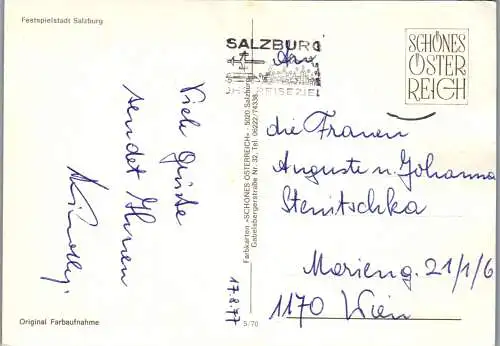 Festspielstadt Salzburg
Viele Grüße
sendet Ihnen
17.8.77
Original Farbaufnahme
Farbkarten »SCHÖNES ÖSTERREICH« - 5020 Salzburg
Gabelsbergerstraße Nr. 32, Tel. 06222/74338
5/76
SALZBURG
REISEZIEL
SCHÖNES
ÖSTER
REICH
An
die Frauen
Auguste u. Johanna
Stenitschka
Marieng. 21/1/6
1170 Wien